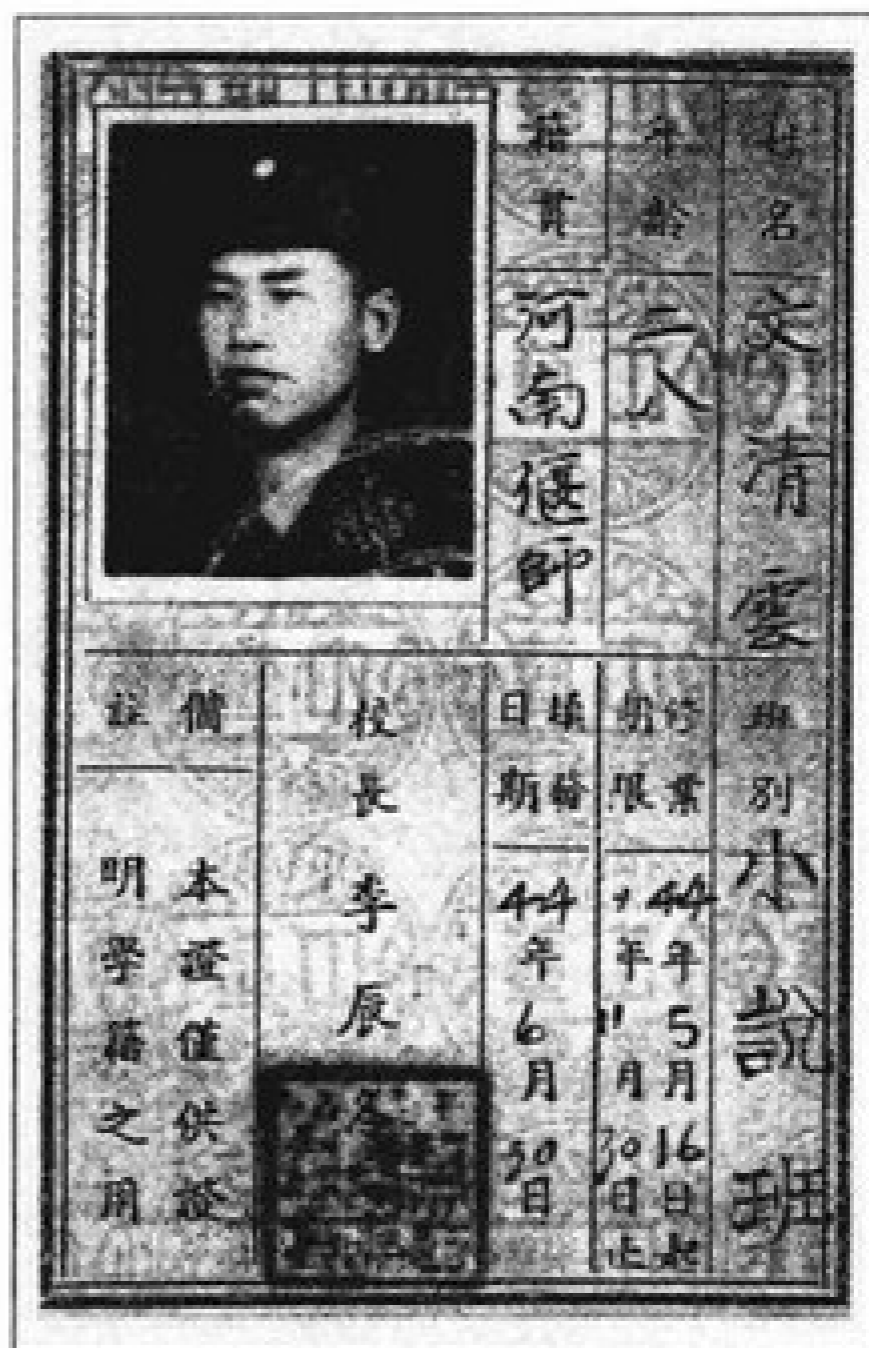 姓名 文清雲
年齡 二八
籍貫 河南偃師
班別 小說班
修業期限 44年5月16日起
〃年11月30日止
填發日期 44年6月30日
校長 李辰冬
備註 本證僅供證
明學籍之用